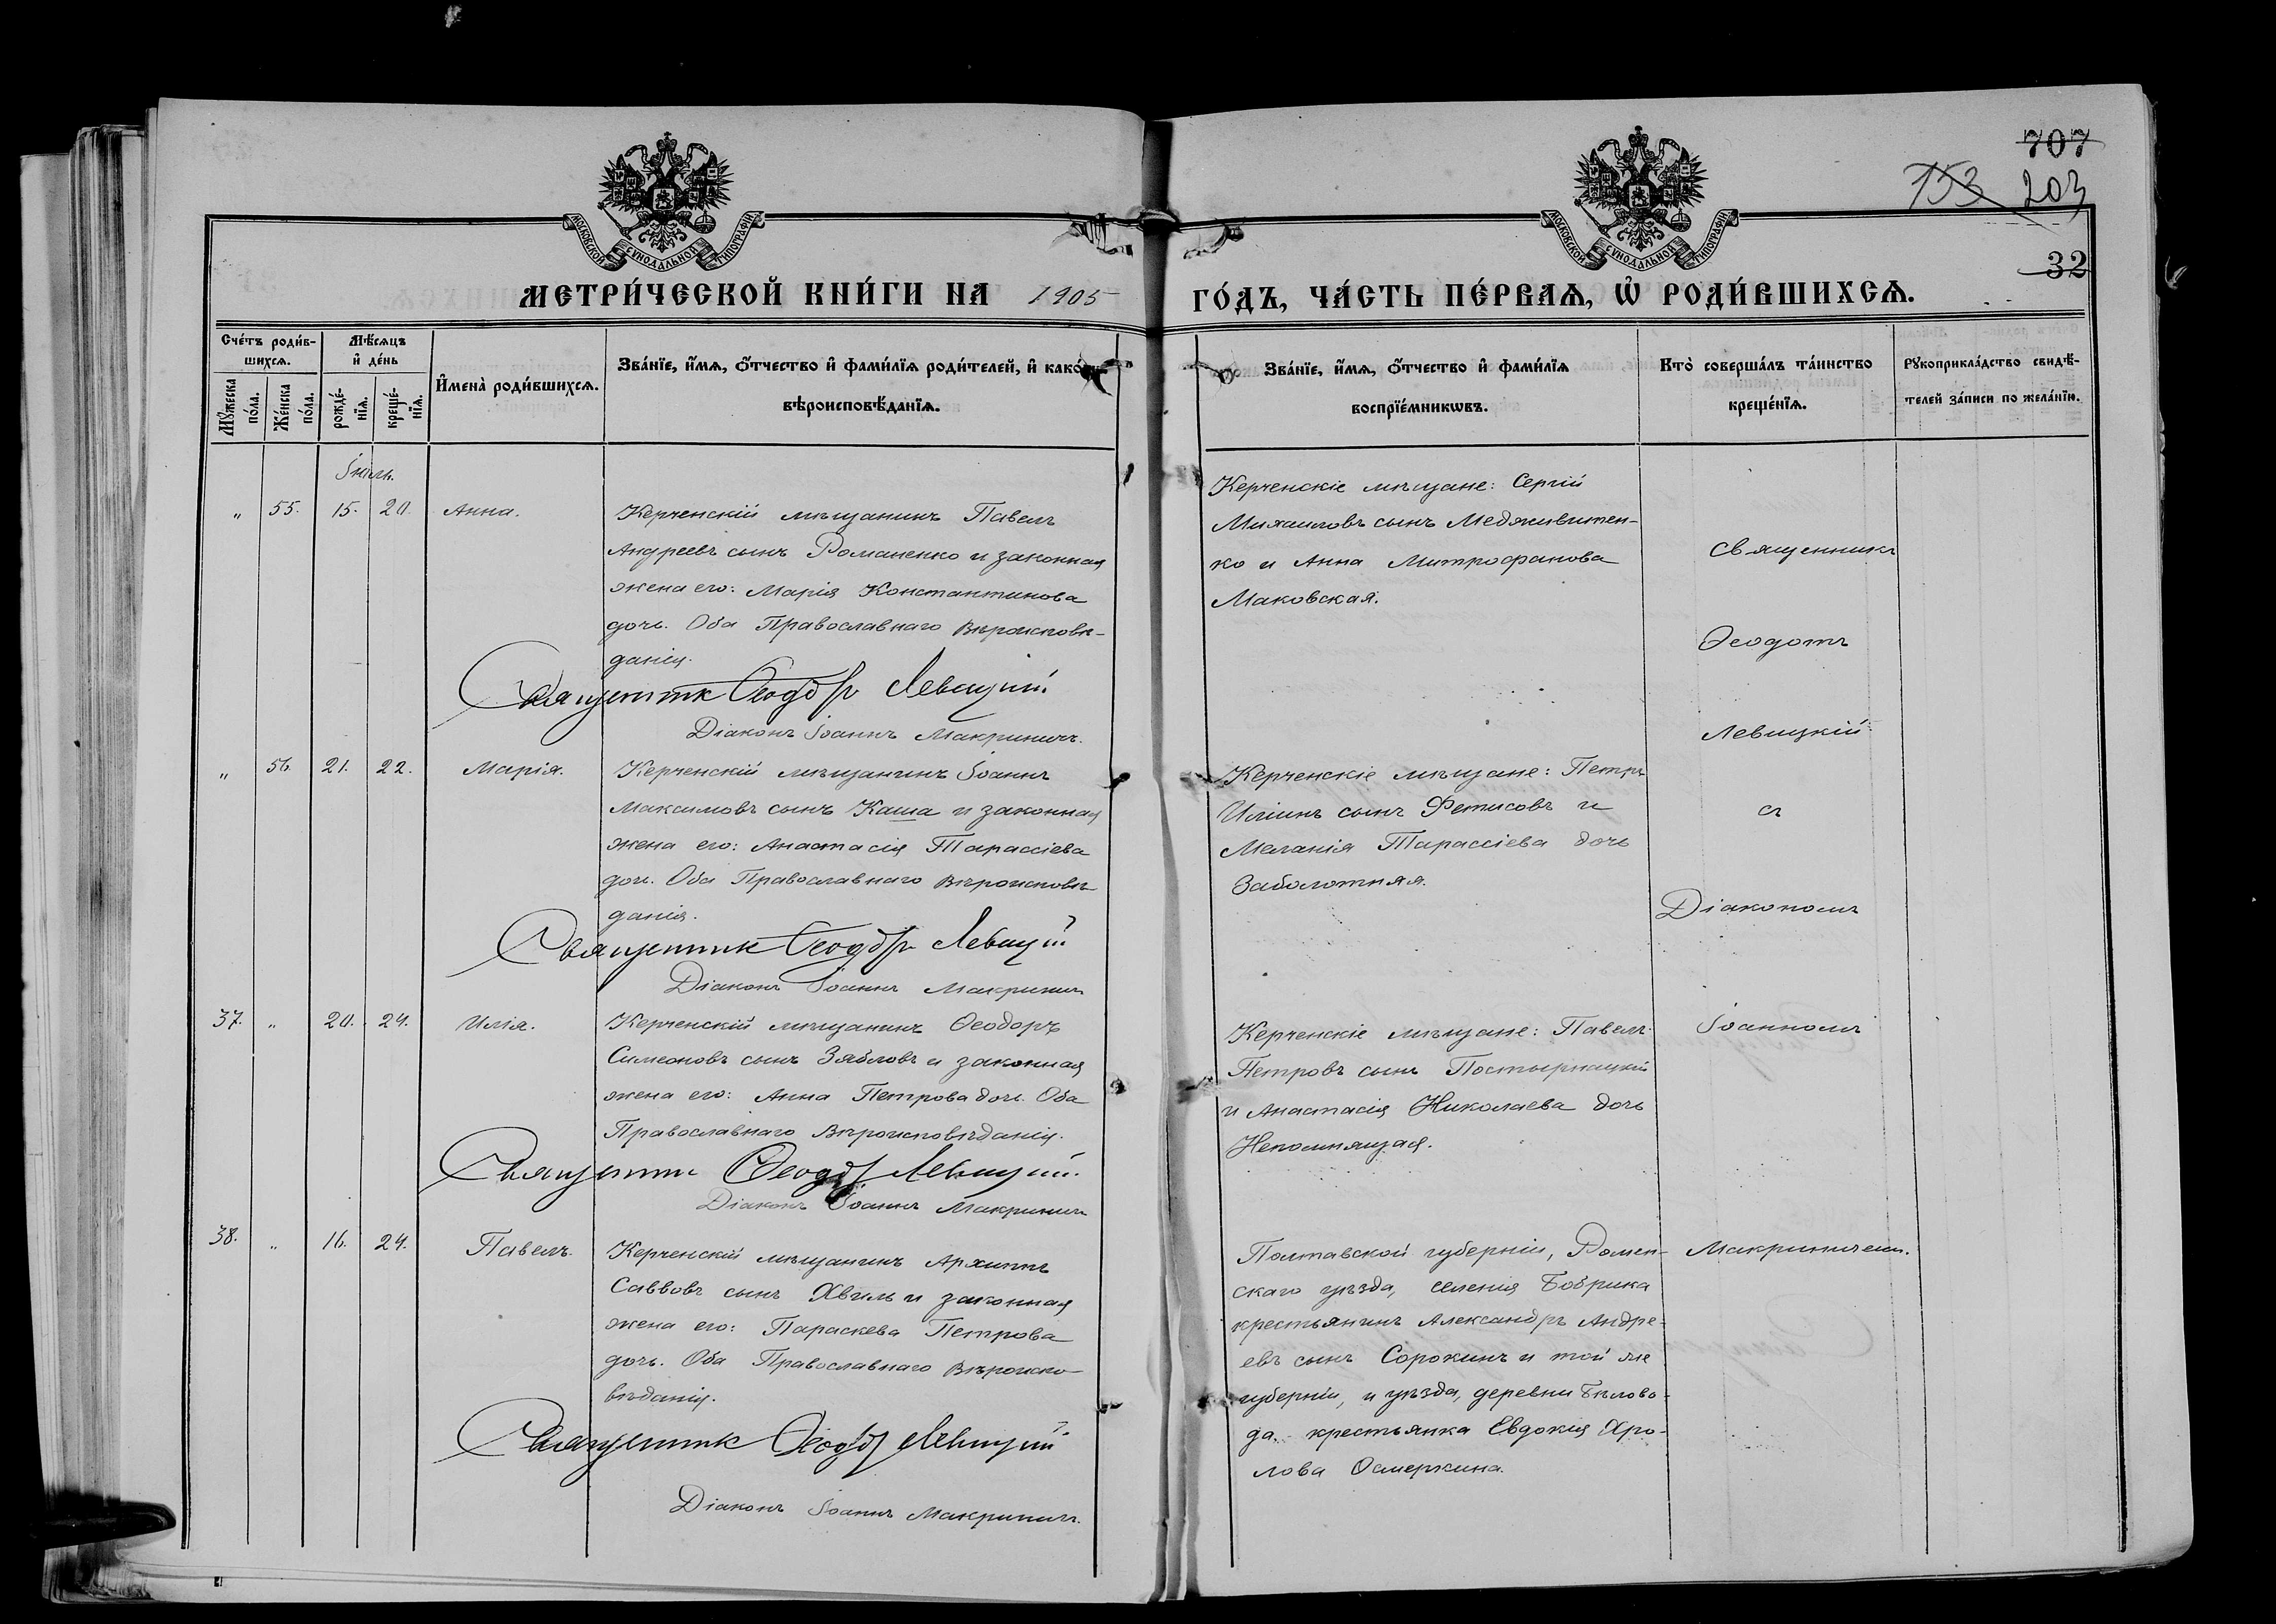 707
153 203
32
МОСКОВСКОЙ СУНОДАЛЬНОЙ ТИПОГРАФІИ
МОСКОВСКОЙ СУНОДАЛЬНОЙ ТИПОГРАФІИ
МЕТРИ́ЧЕСКОЙ КНИ́ГИ НА 1905 ГО́ДЪ, ЧА́СТЬ ПЕ́РВАѦ, Ѡ҆ РОДИ́ВШИХСѦ.
Сче́тъ роди́в-
шихсѧ.
Мꙋ́жеска по́ла.
Же́нска по́ла.
Мѣ́сѧцъ
и҆ де́нь
рожде́-
нїѧ.
креще́-
нїѧ.
И҆мена̀ роди́вшихсѧ.
Зва́нїе, и҆́мѧ, ѻ҆́тчество и҆ фами́лїѧ роди́телей, и҆ како́гѡ
вѣроисповѣ́данїѧ.
Зва́нїе, и҆́мѧ, ѻ҆́тчество и҆ фами́лїѧ
воспрїе́мникѡвъ.
Кто̀ соверша́лъ та́инство
креще́нїѧ.
Рꙋкоприкла́дство свидѣ́-
телей за́писи по жела́нїю.
Іюль.
" 55. 15. 20. Анна.
Керченскій мѣщанинъ Павелъ
Андреевъ сынъ Романенко и законная
жена его: Марія Константинова
дочь. Оба Православнаго Вѣроисповѣ-
данія.
Священник Феодот Левицкий
Діаконъ Іоаннъ Макриничъ.
Керченскіе мѣщане: Сергій
Михаиловъ сынъ Медживитен-
ко и Анна Митрофанова
Маковская.
Священникъ
Ѳеодотъ
Левицкій
съ
Діакономъ
Іоанномъ
Макриничемъ.
" 56. 21. 22. Марія.
Керченскій мѣщанинъ Іоаннъ
Максимовъ сынъ Каша и законная
жена его: Анастасія Тарассіева
дочь. Оба Православнаго Вѣроисповѣ-
данія.
Священник Феодот Левицкий
Діаконъ Іоаннъ Макриничъ
Керченскіе мѣщане: Петръ
Иліинъ сынъ Фетисовъ и
Меланія Тарассіева дочь
Заболотняя.
37. " 20. 24. Илія.
Керченскій мѣщанинъ Ѳеодоръ
Симеоновъ сынъ Зябловъ и законная
жена его: Анна Петрова дочь. Оба
Православнаго Вѣроисповѣданія.
Священник Феодот Левицкий
Діаконъ Іоаннъ Макриничъ
Керченскіе мѣщане: Павелъ
Петровъ сынъ Постырнацкій
и Анастасія Николаева дочь
Непомнящая.
38. " 16. 24. Павелъ.
Керченскій мѣщанинъ Архиппъ
Саввовъ сынъ Хвиль и законная
жена его: Параскева Петрова
дочь. Оба Православнаго Вѣроиспо-
вѣданія.
Священник Феодот Левицкий
Діаконъ Іоаннъ Макриничъ.
Полтавской губерніи, Ромен-
скаго уѣзда, селенія Бобрика
крестьянинъ Александръ Андре-
евъ сынъ Сорокинъ и той же
губерніи, и уѣзда, деревни Бѣлово-
да. крестьянка Евдокія Хро-
лова Осмеркина.